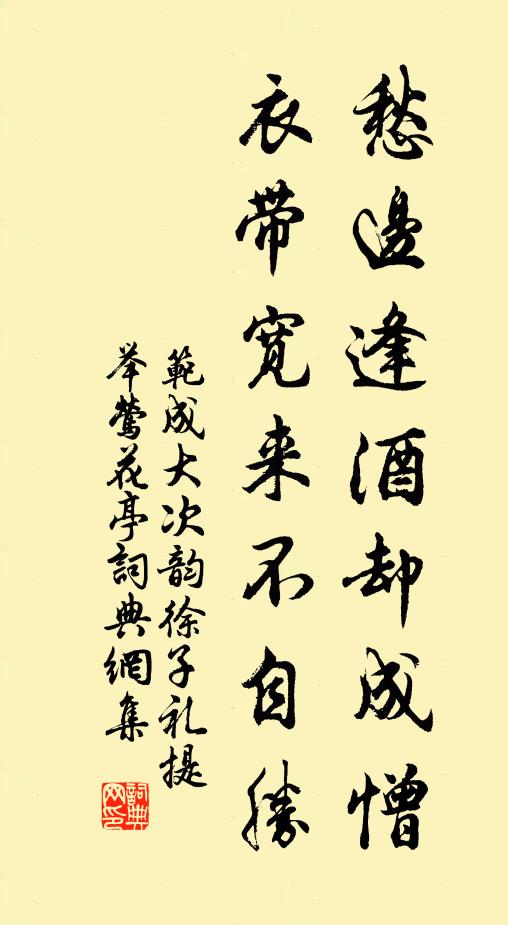 愁邊逢酒却成憎
衣带寬来不自勝
範成大次韵徐子礼提
举鶯花亭詞典網集
詞典網印